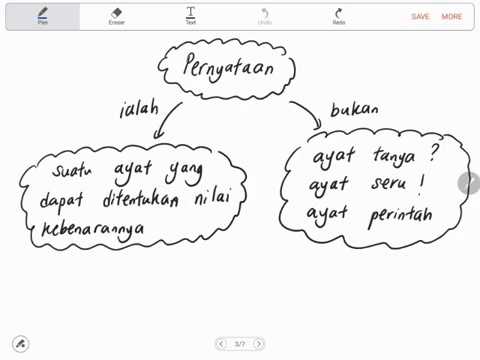 Pen
Eraser
Text
Undo
Redo
SAVE
MORE
Pernyataan
ialah
bukan
suatu ayat yang
dapat ditentukan nilai
kebenarannya
ayat tanya ?
ayat seru !
ayat perintah
3/7